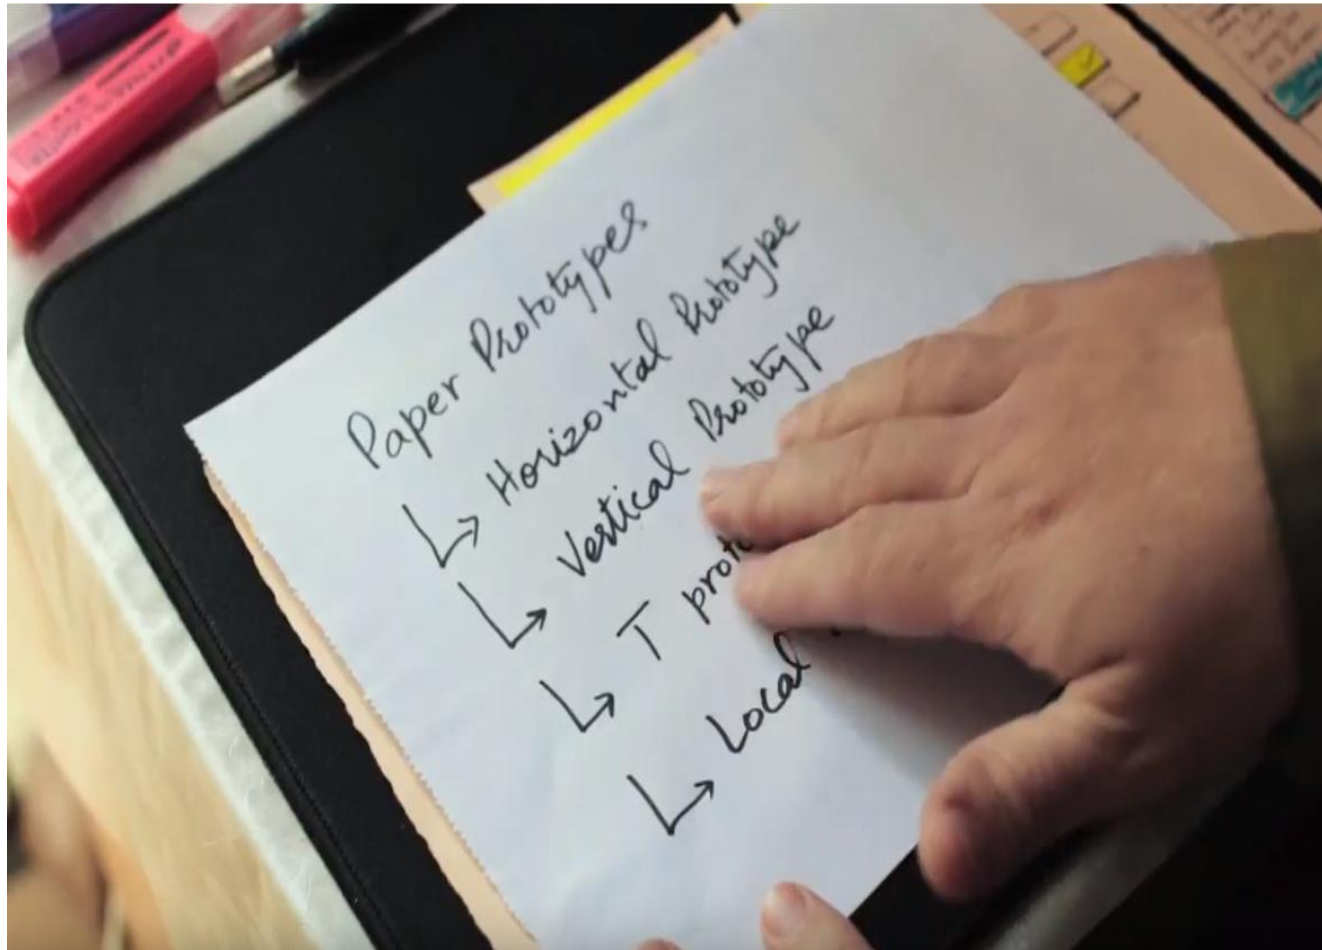 Paper Prototypes
Horizontal Prototype
Vertical Prototype
T proto
Local